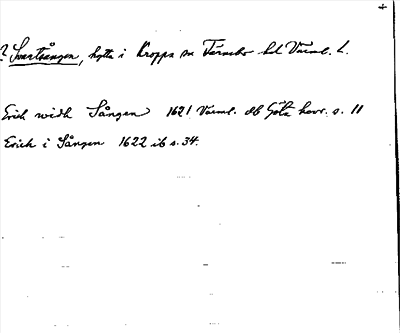 ? Svartsången, hytta i Kroppa sn Färnebo hd Värml. L.
Erich widh Sången 1621 Värml. db Göta hovr. s. 11
Erich i Sången 1622 ib s. 34.